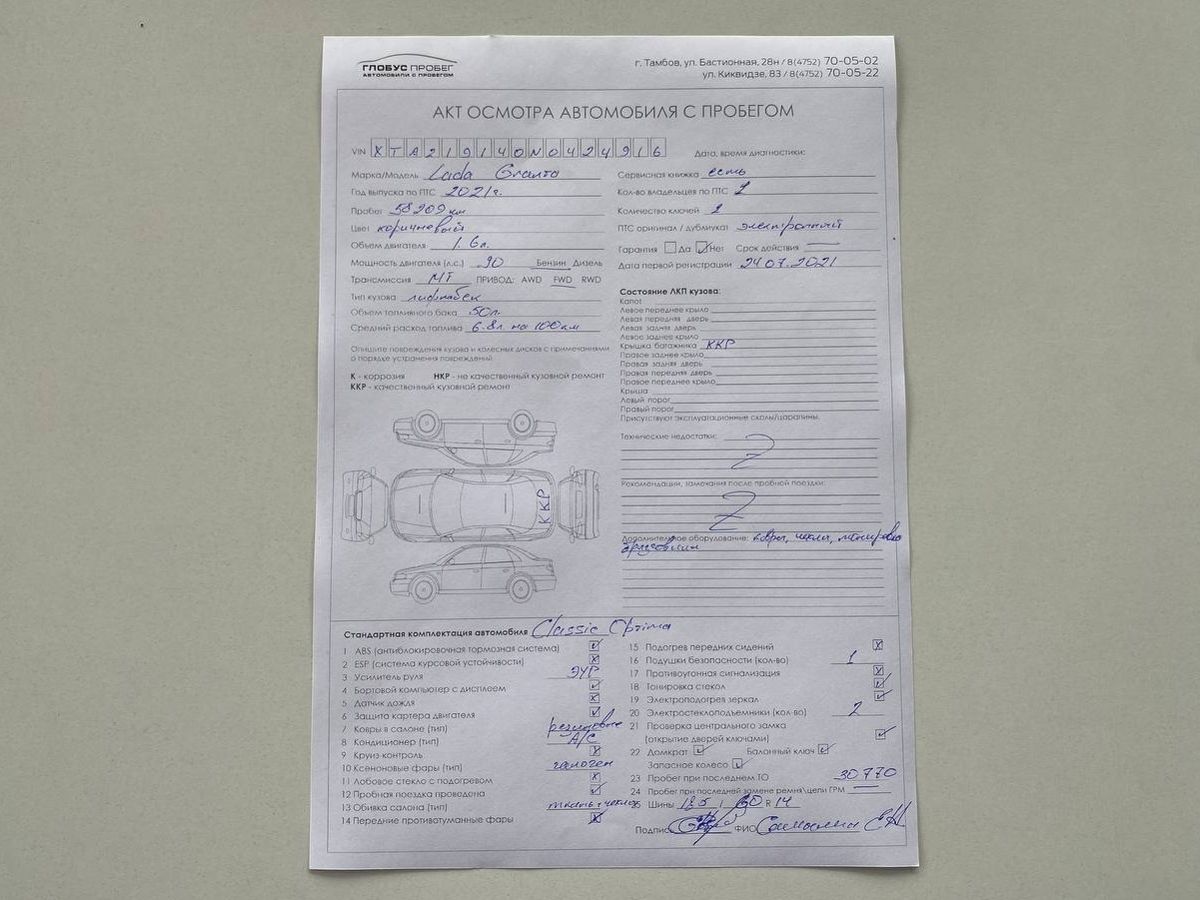 ГЛОБУС ПРОБЕГ
АВТОМОБИЛИ С ПРОБЕГОМ
г. Тамбов, ул. Бастионная, 28н / 8(4752) 70-05-02
ул. Киквидзе, 83 / 8(4752) 70-05-22
АКТ ОСМОТРА АВТОМОБИЛЯ С ПРОБЕГОМ
VIN XTA219140N0424916
Дата, время диагностики:
Марка/Модель Lada Granta
Год выпуска по ПТС 2021г.
Пробег 58209 км
Цвет коричневый
Объем двигателя 1.6л.
Мощность двигателя (л.с.) 90 Бензин Дизель
Трансмиссия МТ ПРИВОД: AWD FWD RWD
Тип кузова лифтбек
Объем топливного бака 50л.
Средний расход топлива 6.8л на 100км
Сервисная книжка есть
Кол-во владельцев по ПТС 1
Количество ключей 1
ПТС оригинал / дубликат электронный
Гарантия Да Нет Срок действия —
Дата первой регистрации 24.07.2021
Опишите повреждения кузова и колесных дисков с примечаниями
о порядке устранения повреждений
К - коррозия НКР - не качественный кузовной ремонт
ККР - качественный кузовной ремонт
ККР
Состояние ЛКП кузова:
Капот
Левое переднее крыло
Левая передняя дверь
Левая задняя дверь
Левое заднее крыло
Крышка багажника ККР
Правое заднее крыло
Правая задняя дверь
Правая передняя дверь
Правое переднее крыло
Крыша
Левый порог
Правый порог
Присутствуют эксплуатационные сколы/царапины.
Технические недостатки:
Рекомендации, замечания после пробной поездки:
Дополнительное оборудование: ковры, чехлы,
Стандартная комплектация автомобиля Classic Optima
1 ABS (антиблокировочная тормозная система)
2 ESP (система курсовой устойчивости)
3 Усилитель руля ЭУР
4 Бортовой компьютер с дисплеем
5 Датчик дождя
6 Защита картера двигателя
7 Ковры в салоне (тип) резиновые
8 Кондиционер (тип) А/С
9 Круиз-контроль
10 Ксеноновые фары (тип) галоген
11 Лобовое стекло с подогревом
12 Пробная поездка проведена
13 Обивка салона (тип) ткань+чехлы
14 Передние противотуманные фары
15 Подогрев передних сидений
16 Подушки безопасности (кол-во) 1
17 Противоугонная сигнализация
18 Тонировка стекол
19 Электроподогрев зеркал
20 Электростеклоподъемники (кол-во) 2
21 Проверка центрального замка
(открытие дверей ключами)
22 Домкрат Балонный ключ
Запасное колесо
23 Пробег при последнем ТО 30770
24 Пробег при последней замене ремня\цепи ГРМ —
25 Шины 185 / 60 R 14
Подпись ФИО